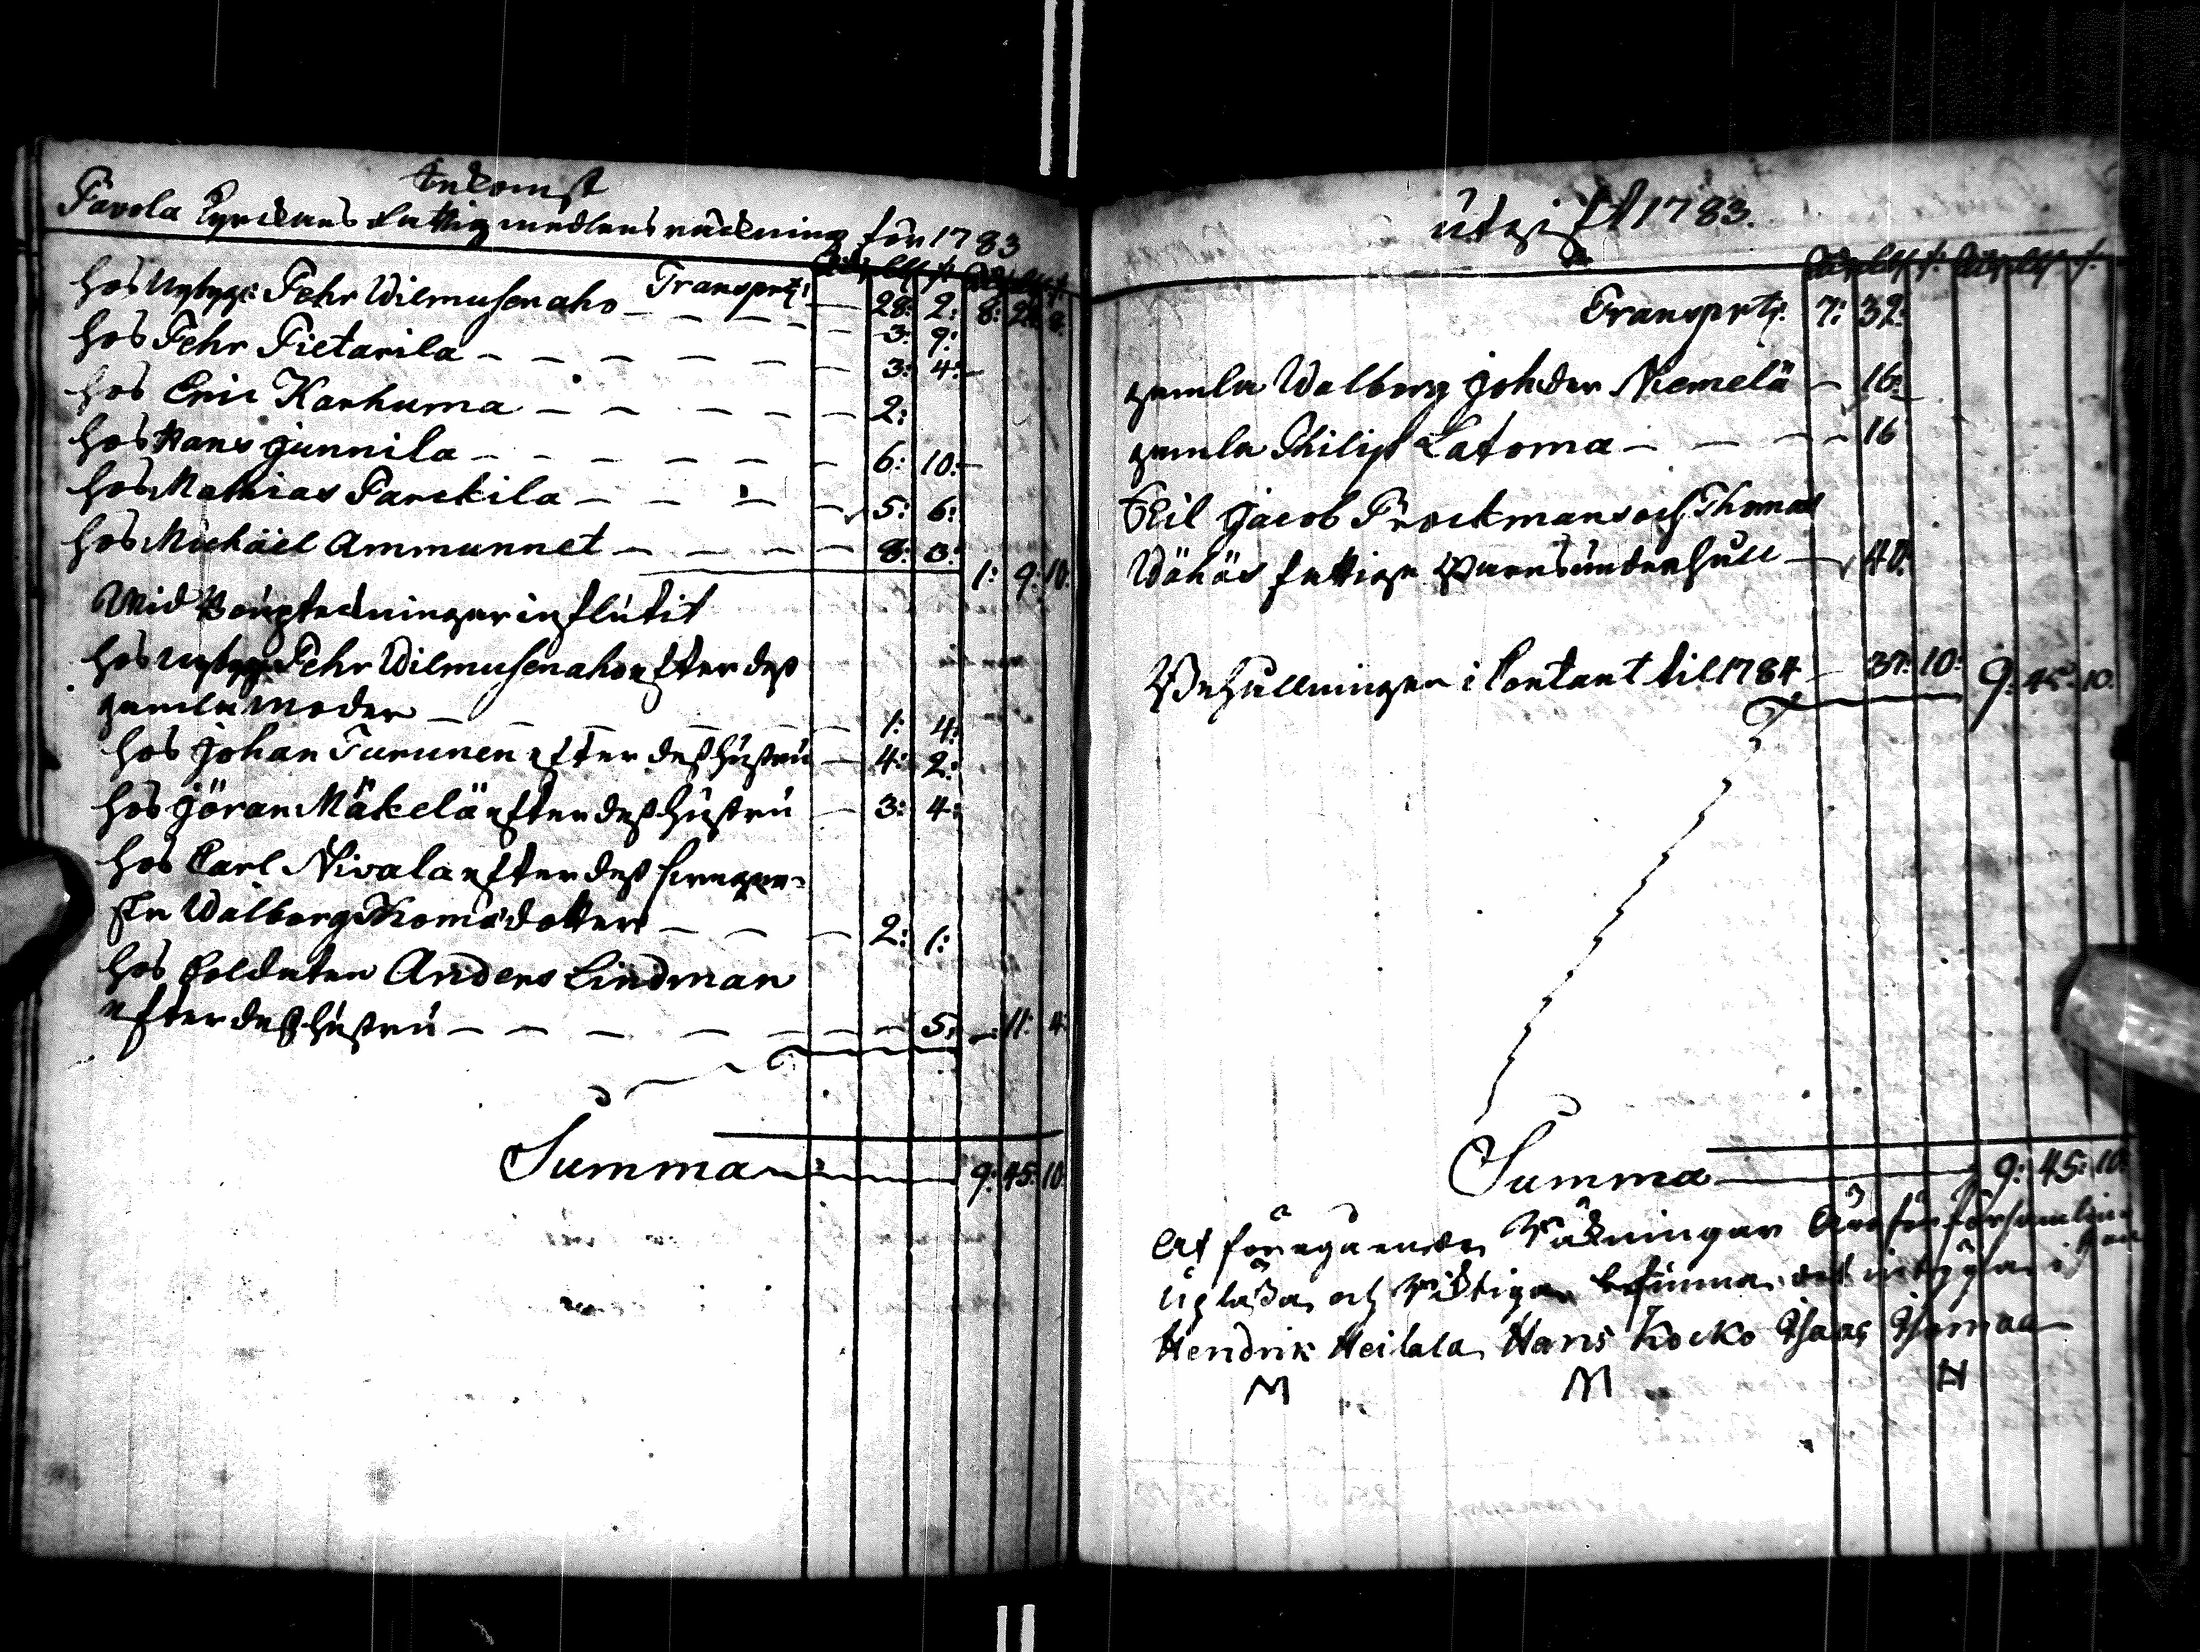 Inkomst
Pavola Kyrckans fattigmedlens räckning för 1783
Rdr ß r. Rdr ß r.
Transprt: — 28: 2: 8: 24: 8:
hos Nybygg: Pehr Wilmusenaho — — — — 3: 9:
hos Pehr Pietarila — — — — — — 3: 4:
hos Eric Karhuma — — — — — 2:
hos Hans Junnila — — — — — — 6: 10:
hos Mathias Parckila — — — — 5: 6:
hos Michäel Ammunnet — — — — 8: 3: 1: 9: 10:
Wid Bouptekningar influtit
hos Nybygg: Pehr Wilmusenaho efter dess
gamla moder — — — — — 1: 4:
hos Johan Turunen efter dess hustru — 4: 2:
hos Jöran Mäkelä efter dess hustru — 3: 4:
hos Carl Nivala efter dess
Walborg Thomædotter — — — 2: 1:
hos Soldaten Anders Lindman
efter dess hustru — — — — — — — 5: —: 11: 4:
Summa — 9: 45: 10:
Utgift 1783.
Rdr ß r. Rdr ß r.
Transprt: 7: 32:
gamla Walborg Johsder Niemelä — 16:
gamla Philip Latoma — — — — 16
Til Jacob Brockmans och Thomas
Wähäs fattiga Barns underhåll — 40:
Behållningen i Contant til 1784 — 37: 10: 9: 45: 10:
Summa — 9: 45: 10:
At föregående Räkningar äro för församlingen
upläsda och Riktiga befunna det intygar
Hendrik Heilala Hans Kocko Isaac Thomae
M M N